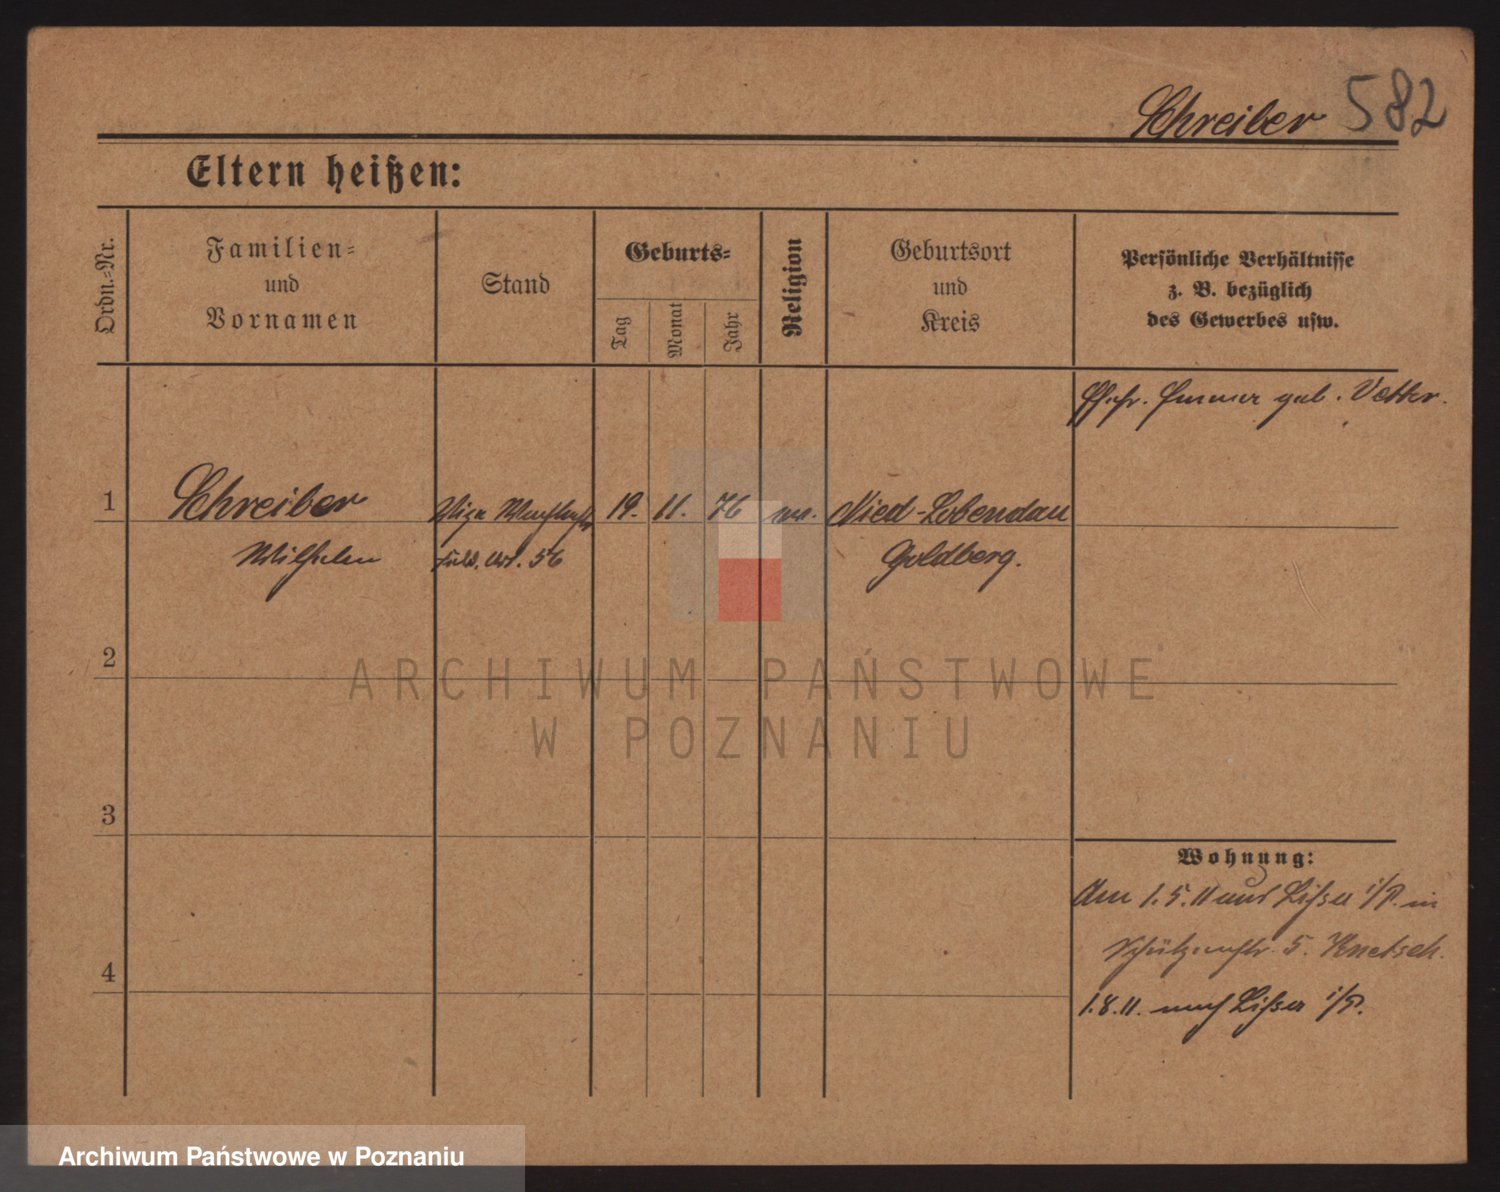 Schreiber 582
Eltern heißen:
Ordn.-Nr.
Familien-
und
Vornamen
Stand
Geburts-
Tag
Monat
Jahr
Religion
Geburtsort
und
Kreis
Persönliche Verhältnisse
z. B. bezüglich
des Gewerbes usw.
Ehefr. Emma geb. Vetter.
1
Schreiber
Wilhelm
Vize Wachtmstr
Feld. Art. 56
19. 11. 76 ev.
Nied-Lobendau
Goldberg.
2
ARCHIWUM PAŃSTWOWE
W POZNANIU
3
4
Wohnung:
Am 1.5.11 aus Lissa i/P. in
Schützenstr. 5. Knetsch.
1.8.11. nach Lissa i/P.
Archiwum Państwowe w Poznaniu